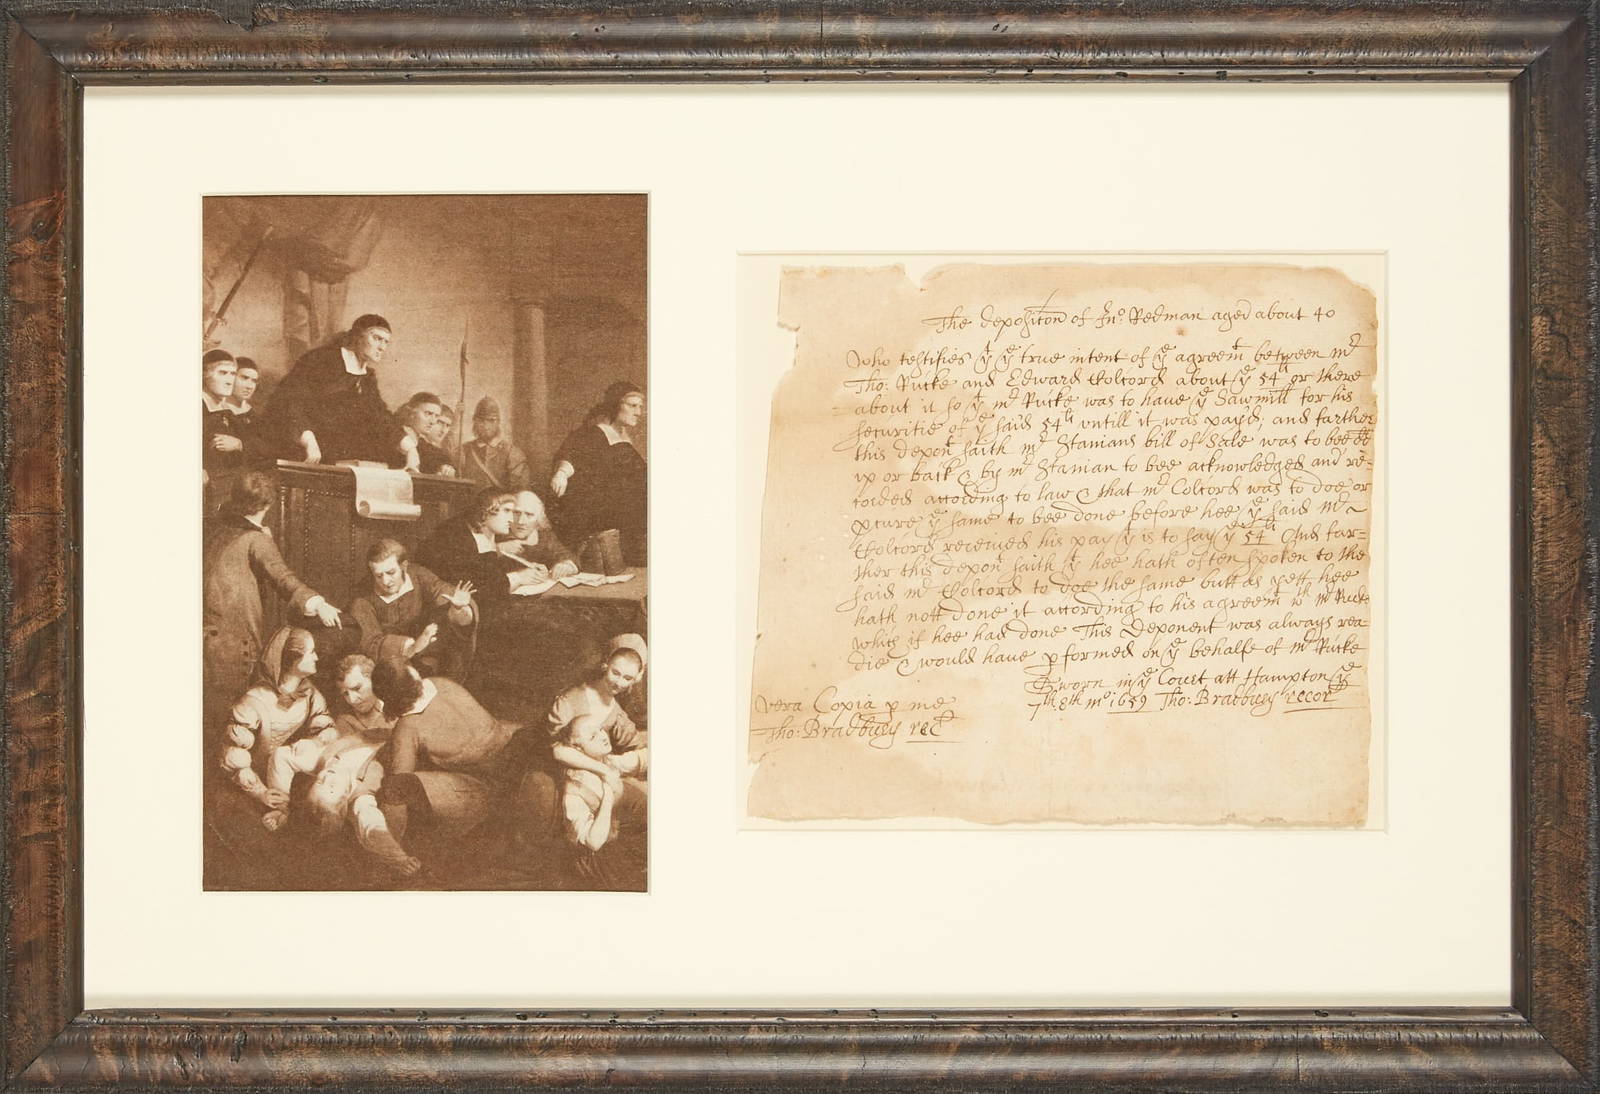 The deposition of Jno: Redman aged about 40
who testifies yt ye true intent of ye agreemt between mr
Tho: Rucke and Edward Colcord about ye 54ll or there
about it so yt mr Rucke was to have ye Sawmill for his
securitie of ye said 54ll untill it was payd; and farther
this depont saith mr Stanians bill of Sale was to bee
up or back & by mr Stanian to bee acknowledged and re=
corded according to law & that mr Colcord was to doe or
pcure ye same to bee done before hee ye said mr
Colcord received his pay yt is to say ye 54ll And far=
ther this depont saith yt hee hath often spoken to the
said mr Colcord to doe the same butt as yett hee
hath nott done it according to his agreemt wth mr Rucke
which if hee had done This Deponent was always rea=
die & would have pformed on ye behalfe of mr Rucke
Sworn in ye Court att Hampton ye
7th: 8th mo 1659 Tho: Bradbury recor
vera Copia p me
Tho: Bradbury rec